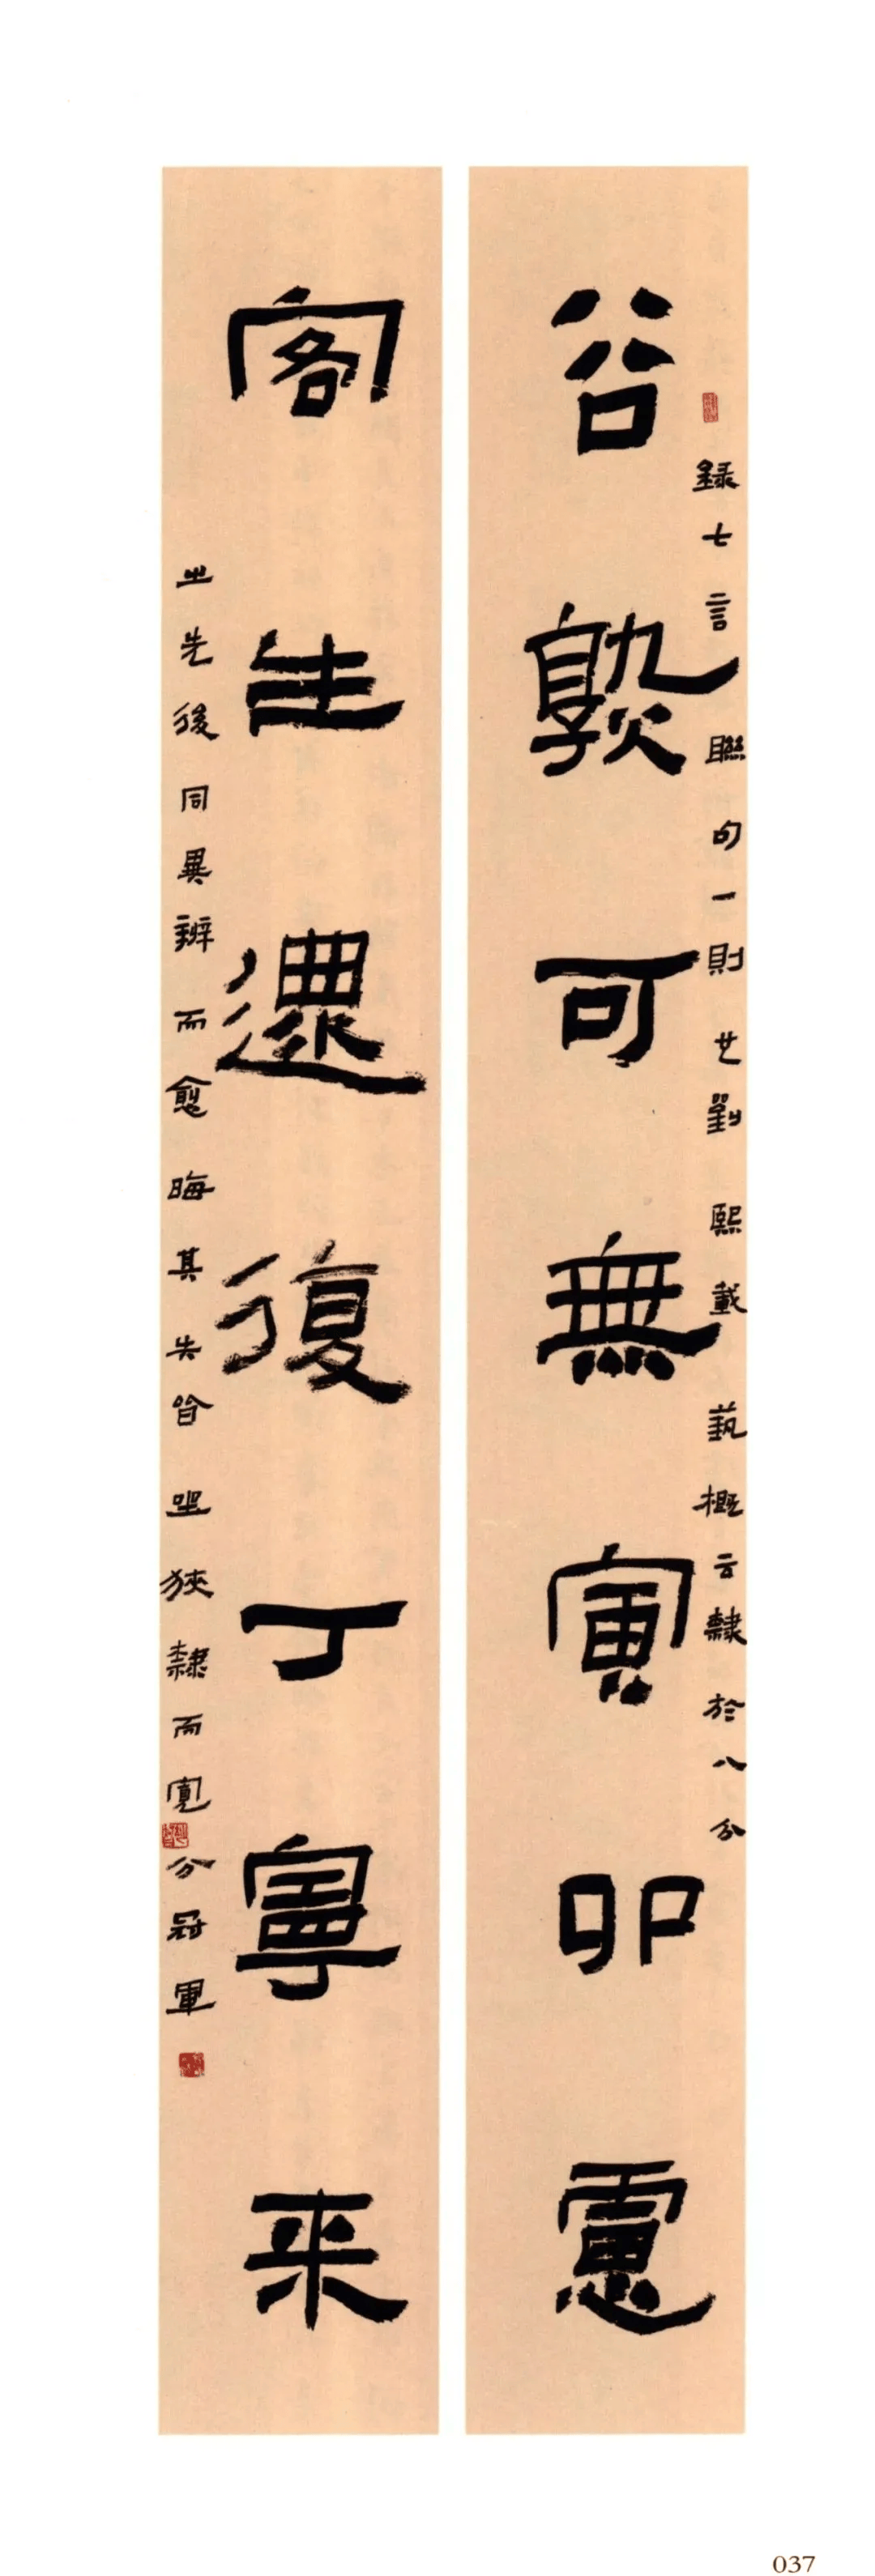 谷熟可無寅卯慮
客生還復丁寧来
録七言聯句一則劉熙載藝概云隸於八分
之先後同異辨而愈晦其失皆坐狹隸而寬分冠軍
037